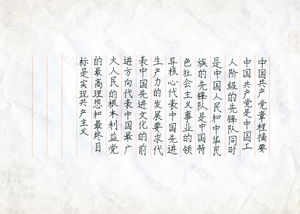 中国共产党章程摘要
中国共产党是中国工
人阶级的先锋队同时
是中国人民和中华民
族的先锋队是中国特
色社会主义事业的领
导核心代表中国先进
生产力的发展要求代
表中国先进文化的前
进方向代表中国最广
大人民的根本利益党
的最高理想和最终目
标是实现共产主义